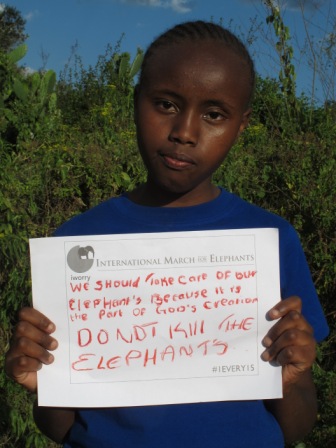 iworry
INTERNATIONAL MARCH FOR ELEPHANTS
WE SHOULD TAKE CARE OF OUR
ELEPHANT'S BECAUSE IT IS
THE PART OF GOD'S CREATION
DO NOT KILL THE
ELEPHANTS.
#1EVERY15